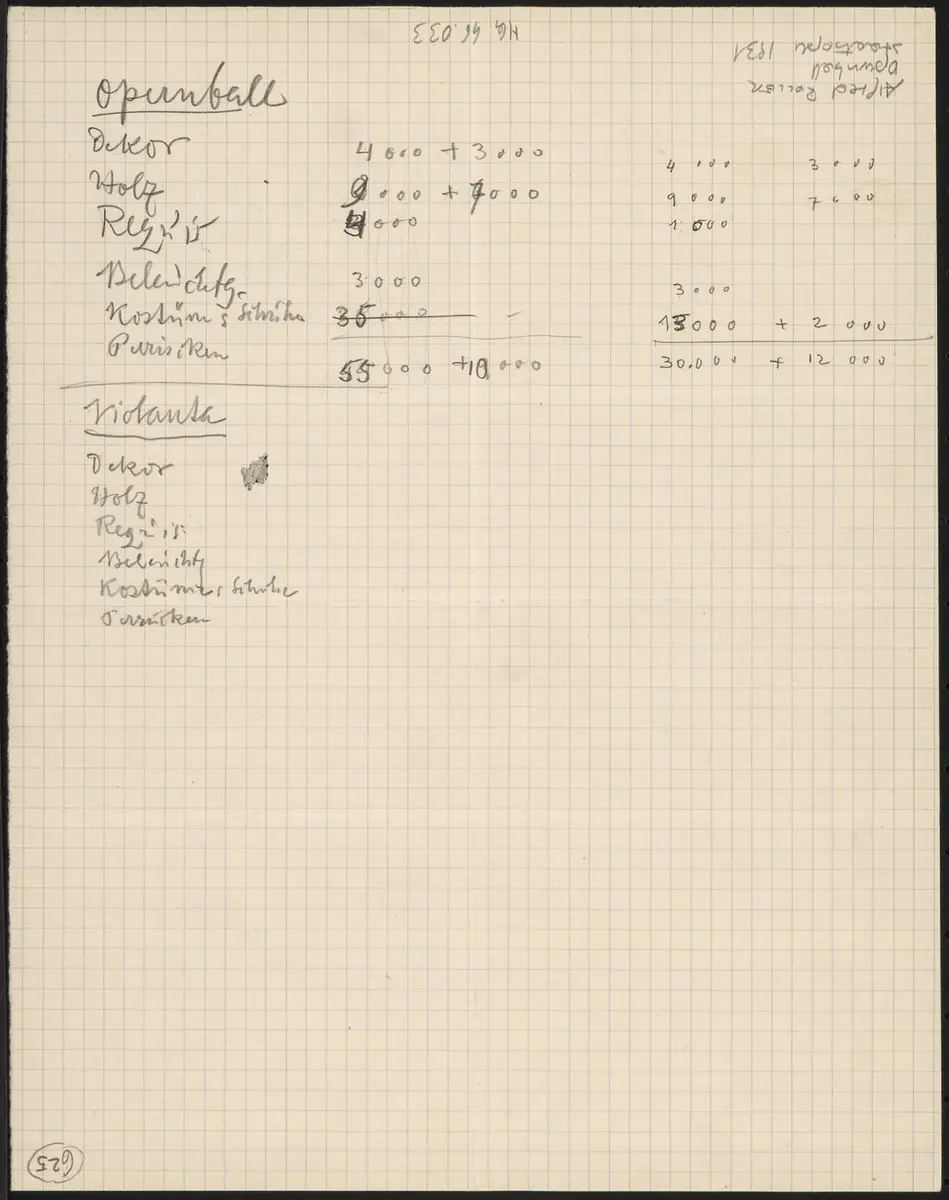 HG 46.033
Alfred Roller
Opernball
Staatsoper 1931
Opernball
Dekor 4000 + 3000 4000 3000
Holz 9000 + 7000 9000 7000
Requis 4000 1000
Beleuchtg. 3000 3000
Kostüm & Schuhe 35000 – 13000 + 2000
Perücken
55000 + 10000 30.000 + 12000
Violanta
Dekor
Holz
Requis.
Beleuchtg
Kostüme & Schuhe
Perücken
625